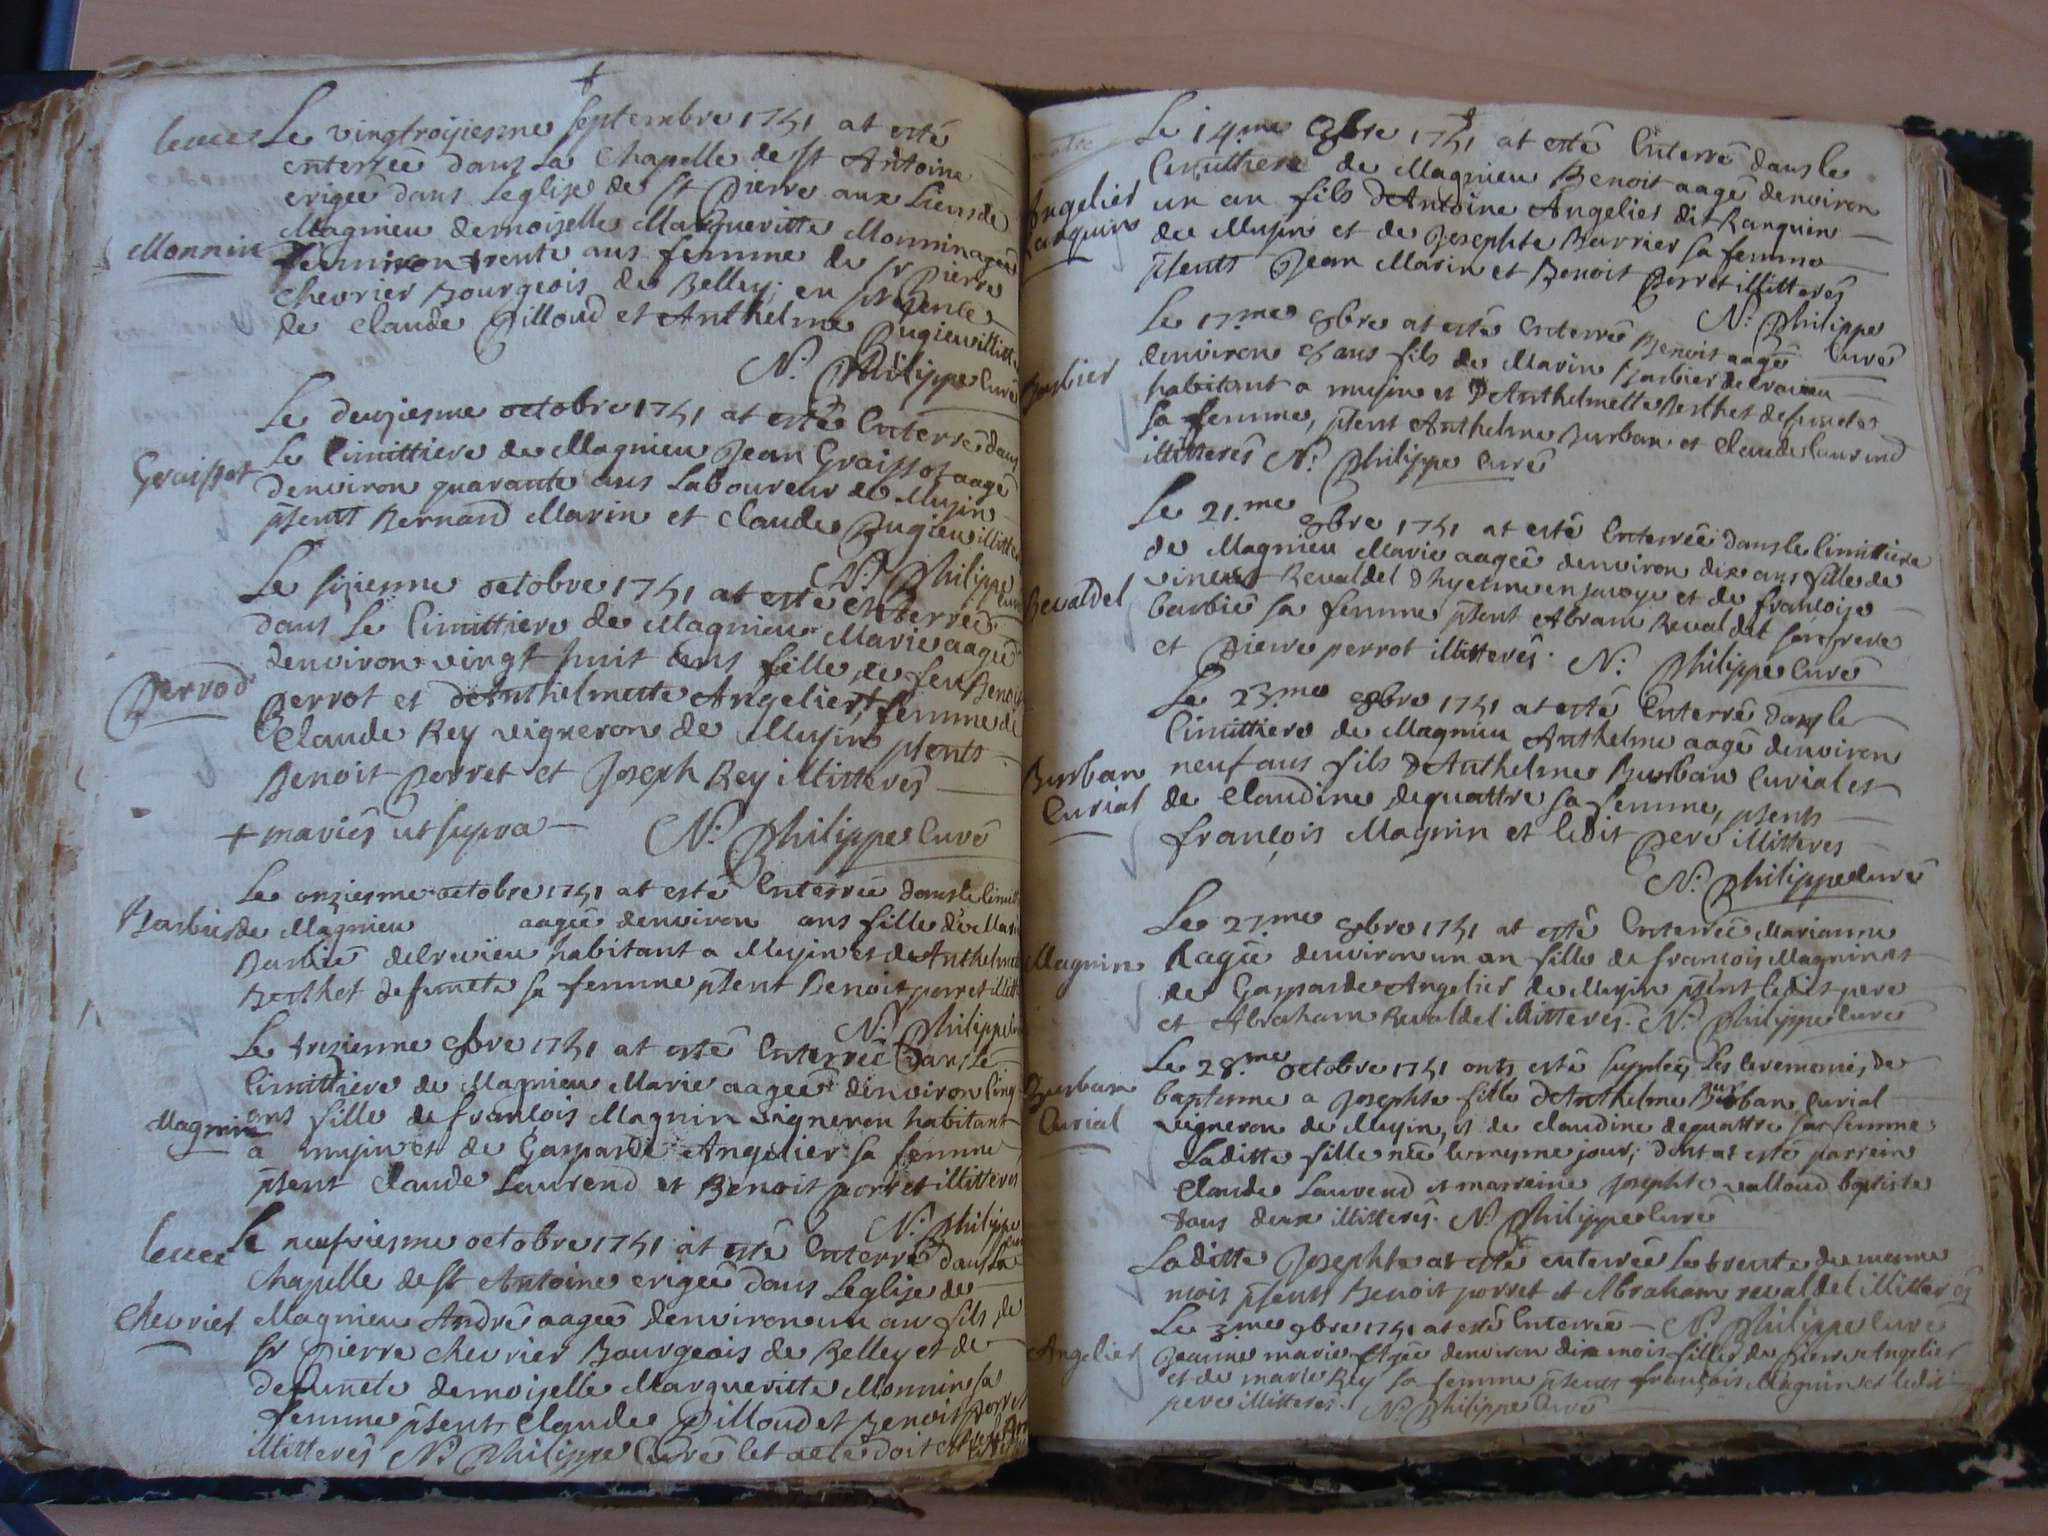 Le vingtroisiesme septembre 1741 at esté
enterrée dans la Chapelle de St Antoine
erigée dans Leglise de St Pierre aux Liens de
Magnieu demoiselle Margueritte Monnin agée
Monnin
denviron trente ans femme de Sr Pierre
Chevrier Bourgeois de Belley; en presence
de Claude Pilloud et Anthelme Bugieu illitt
N. Philippe Curé
Le deuziesme octobre 1741 at esté Enterré dans
Le Cimittiere de Magnieu Jean Graissot aagé
Graissot
denviron quarante ans Laboureur de Musin
psents Bernard Marin et Claude Bugieu illitte
N. Philippe Curé
Le sizieme octobre 1741 at esté enterrée
dans Le Cimittiere de Magnieu Marie aagée
denviron vingt huit ans fille de feu Benoit
Perrod
Perrot et dAnthelmette Angelier + femme de
Claude Rey vigneron de Musin psents
Benoit Perret et Joseph Rey illitterés
+ mariés ut supra N. Philippe Curé
Le onziesme octobre 1741 at esté Enterrée dans le Cimitt
Barbier
de Magnieu aagée denviron ans fille de Marin
Barbié de Crevieu habitant a Musin et de Anthelmette
Berthet defuncte sa femme psent Benoit perret illitt
N. Philippe Curé
Le treizieme 8bre 1741 at esté Enterrée dans Le
Cimittiere de Magnieu Marie aagée denviron Cinq
Magnin
ans fille de francois Magnin Vigneron habitant
a musin et de Gasparde Angelier sa femme
psent Claude Laurend et Benoit porret illitteres
N. Philippe Curé
Le neufviesme octobre 1741 at esté Enterré dans La
Chapelle de St Antoine erigée dans Leglise de
Chevrier
Magnieu André aagée denviron un an fils de
Sr Pierre Chevrier Bourgeois de Belley et de
defuncte demoiselle Margueritte Monnin sa
femme psent Claude Pilloud et Benoit Porret
illitterés N. Philippe Curé Cet acte doit
Le 14.me 8bre 1741 at esté Enterré dans le
Cimittiere de Magnieu Benoit aagé denviron
Angelier
un an fils dAntoine Angelier dit Ranquin
Ranquin
de Musin et de Josephte Barrier sa femme
psents Jean Marin et Benoit Perret illitterés
N. Philippe Curé
Le 17.me 8bre at esté Enterré Benoit aagé
Barbier
denviron 8 ans fils de Marin Barbier de Crevieu
habitant a musin et dAnthelmette Berthet defuncte
sa femme, psent Anthelme Burban et Claude Laurend
illitterés N. Philippe Curé
Le 21.me 8bre 1741 at esté Enterrée dans le Cimittiere
de Magnieu Marie aagée denviron dix ans fille de
Revaldel
vincent Revaldel dhyenne en savoye et de françoise
barbié sa femme psent Abram Revaldel son frere
et Pierre perrot illitterés. N. Philippe Curé
Le 23.me 8bre 1741 at esté Enterré dans le
Cimittiere de Magnieu Anthelme aagé denviron
Burban
neuf ans fils dAnthelme Burban Curial et
Curial
de Claudine dequattre sa femme, psents
françois Magnin et ledit pere illitteres
N. Philippe Curé
Le 27.me 8bre 1741 at esté Enterrée Marianne
Magnin
aagée denviron un an fille de francois Magnin et
de Gasparde Angelier de Musin psent ledit pere
et Abraham Revaldel illitterés. N. Philippe Curé
Le 28.me octobre 1741 onts esté supplées Les Ceremonies de
Burban
bapteme a Josephte fille dAnthelme Burban Curial
Curial
vigneron de Musin, et de Claudine dequattre sa femme
Laditte fille née le mesme jour, dont at esté parrein
Claude Laurend et marreine Josephte valloud baptiste
tous deux illitterés. N. Philippe Curé
Laditte Josephte at esté enterrée Le trente du mesme
mois psents Benoit porret et Abraham revaldel illitterés
Le 3.me 9bre 1741 at esté Enterrée N. Philippe Curé
Angelier
Jeanne marie agée denviron dix mois fille de Pierre Angelier
et de marie Rey sa femme psents françois Magnin et ledit
pere illitterés. N. Philippe Curé